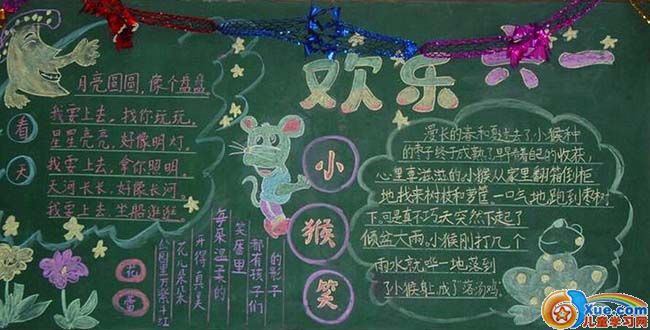 欢乐六一
月亮圆圆，像个盘盘，
我要上去，找你玩玩，
星星亮亮，好像明灯。
我要上去，拿你照明。
天河长长，好像长河
我要上去，坐船逛逛。
看
天
小
猴
笑
漫长的春和夏过去了小猴种
的枣子终于成熟了,早看自己的收获,
心里喜滋滋的,小猴从家里翻箱倒柜
地找来树枝和箩筐一口气地跑到枣树
下,可是真不巧天突然下起了
倾盆大雨,小猴刚打几个
雨水就哗一地落到
了小猴身上,成了落汤鸡。
的影子
都有孩子们
笑座里
每朵温柔的
开得真美
花儿朵朵
公园里万紫千红
花
蕾
Xue.com
儿童学习网